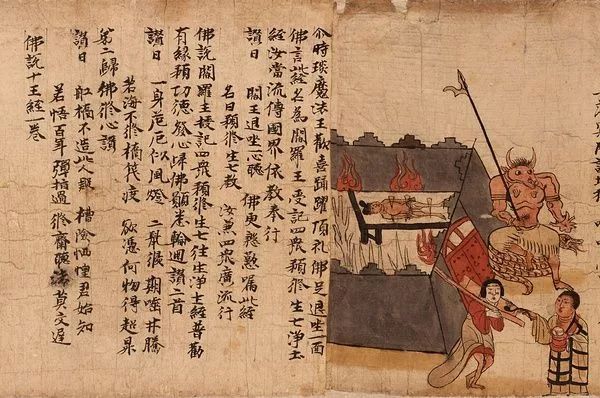 尒時琰魔法王歡喜踊躍頂礼佛足退坐一面
佛言此経名為閻羅王受記四衆預修生七淨土
経汝當流傳國界依教奉行
讃曰 閻王退坐一心聴 佛更慇懃囑此経
名曰預修生七教 汝兼四衆廣流行
佛說閻羅王授記四衆預修生七往生淨土経普勸
有緣預功德發心歸佛願息輪迴讃二首
讃曰 一身危厄似風燈 二鼠侵期嚙井騰
苦海不修橋筏渡 欲憑何物得超昇
第二歸佛修心讃
讃曰 舡橋不造此人癡 遭險恓惶君始知
若悟百年彈指過 修齋聴法莫交遲
佛說十王経一卷